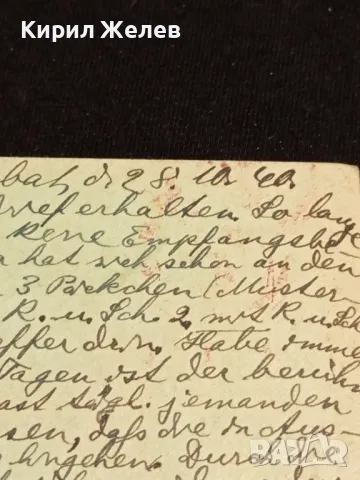 Кирил Желев
bat, d. 28. 10. 40.
Brief erhalten. So lange
keine Empfangsbe
hat sich schon an den
3 Päckchen (Muster-
R. u. Sch. 2 mit R. u. Sch
effer drin. Habe imme
Tagen ist der berüh
ast tägl. jemanden
sen, daß die in Aus-
hingehen. Durch die
BAZAR